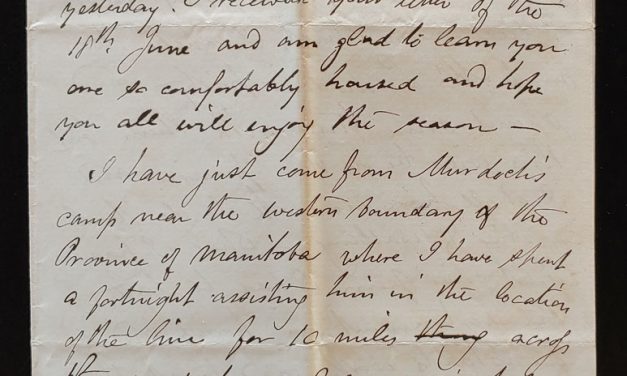 yesterday. I received your letter of the
18th June and am glad to learn you
are so comfortably housed and hope
you all will enjoy the season —
I have just come from Murdoch's
camp near the western boundary of the
Province of Manitoba where I have spent
a fortnight assisting him in the location
of the line for 10 miles thing across
the